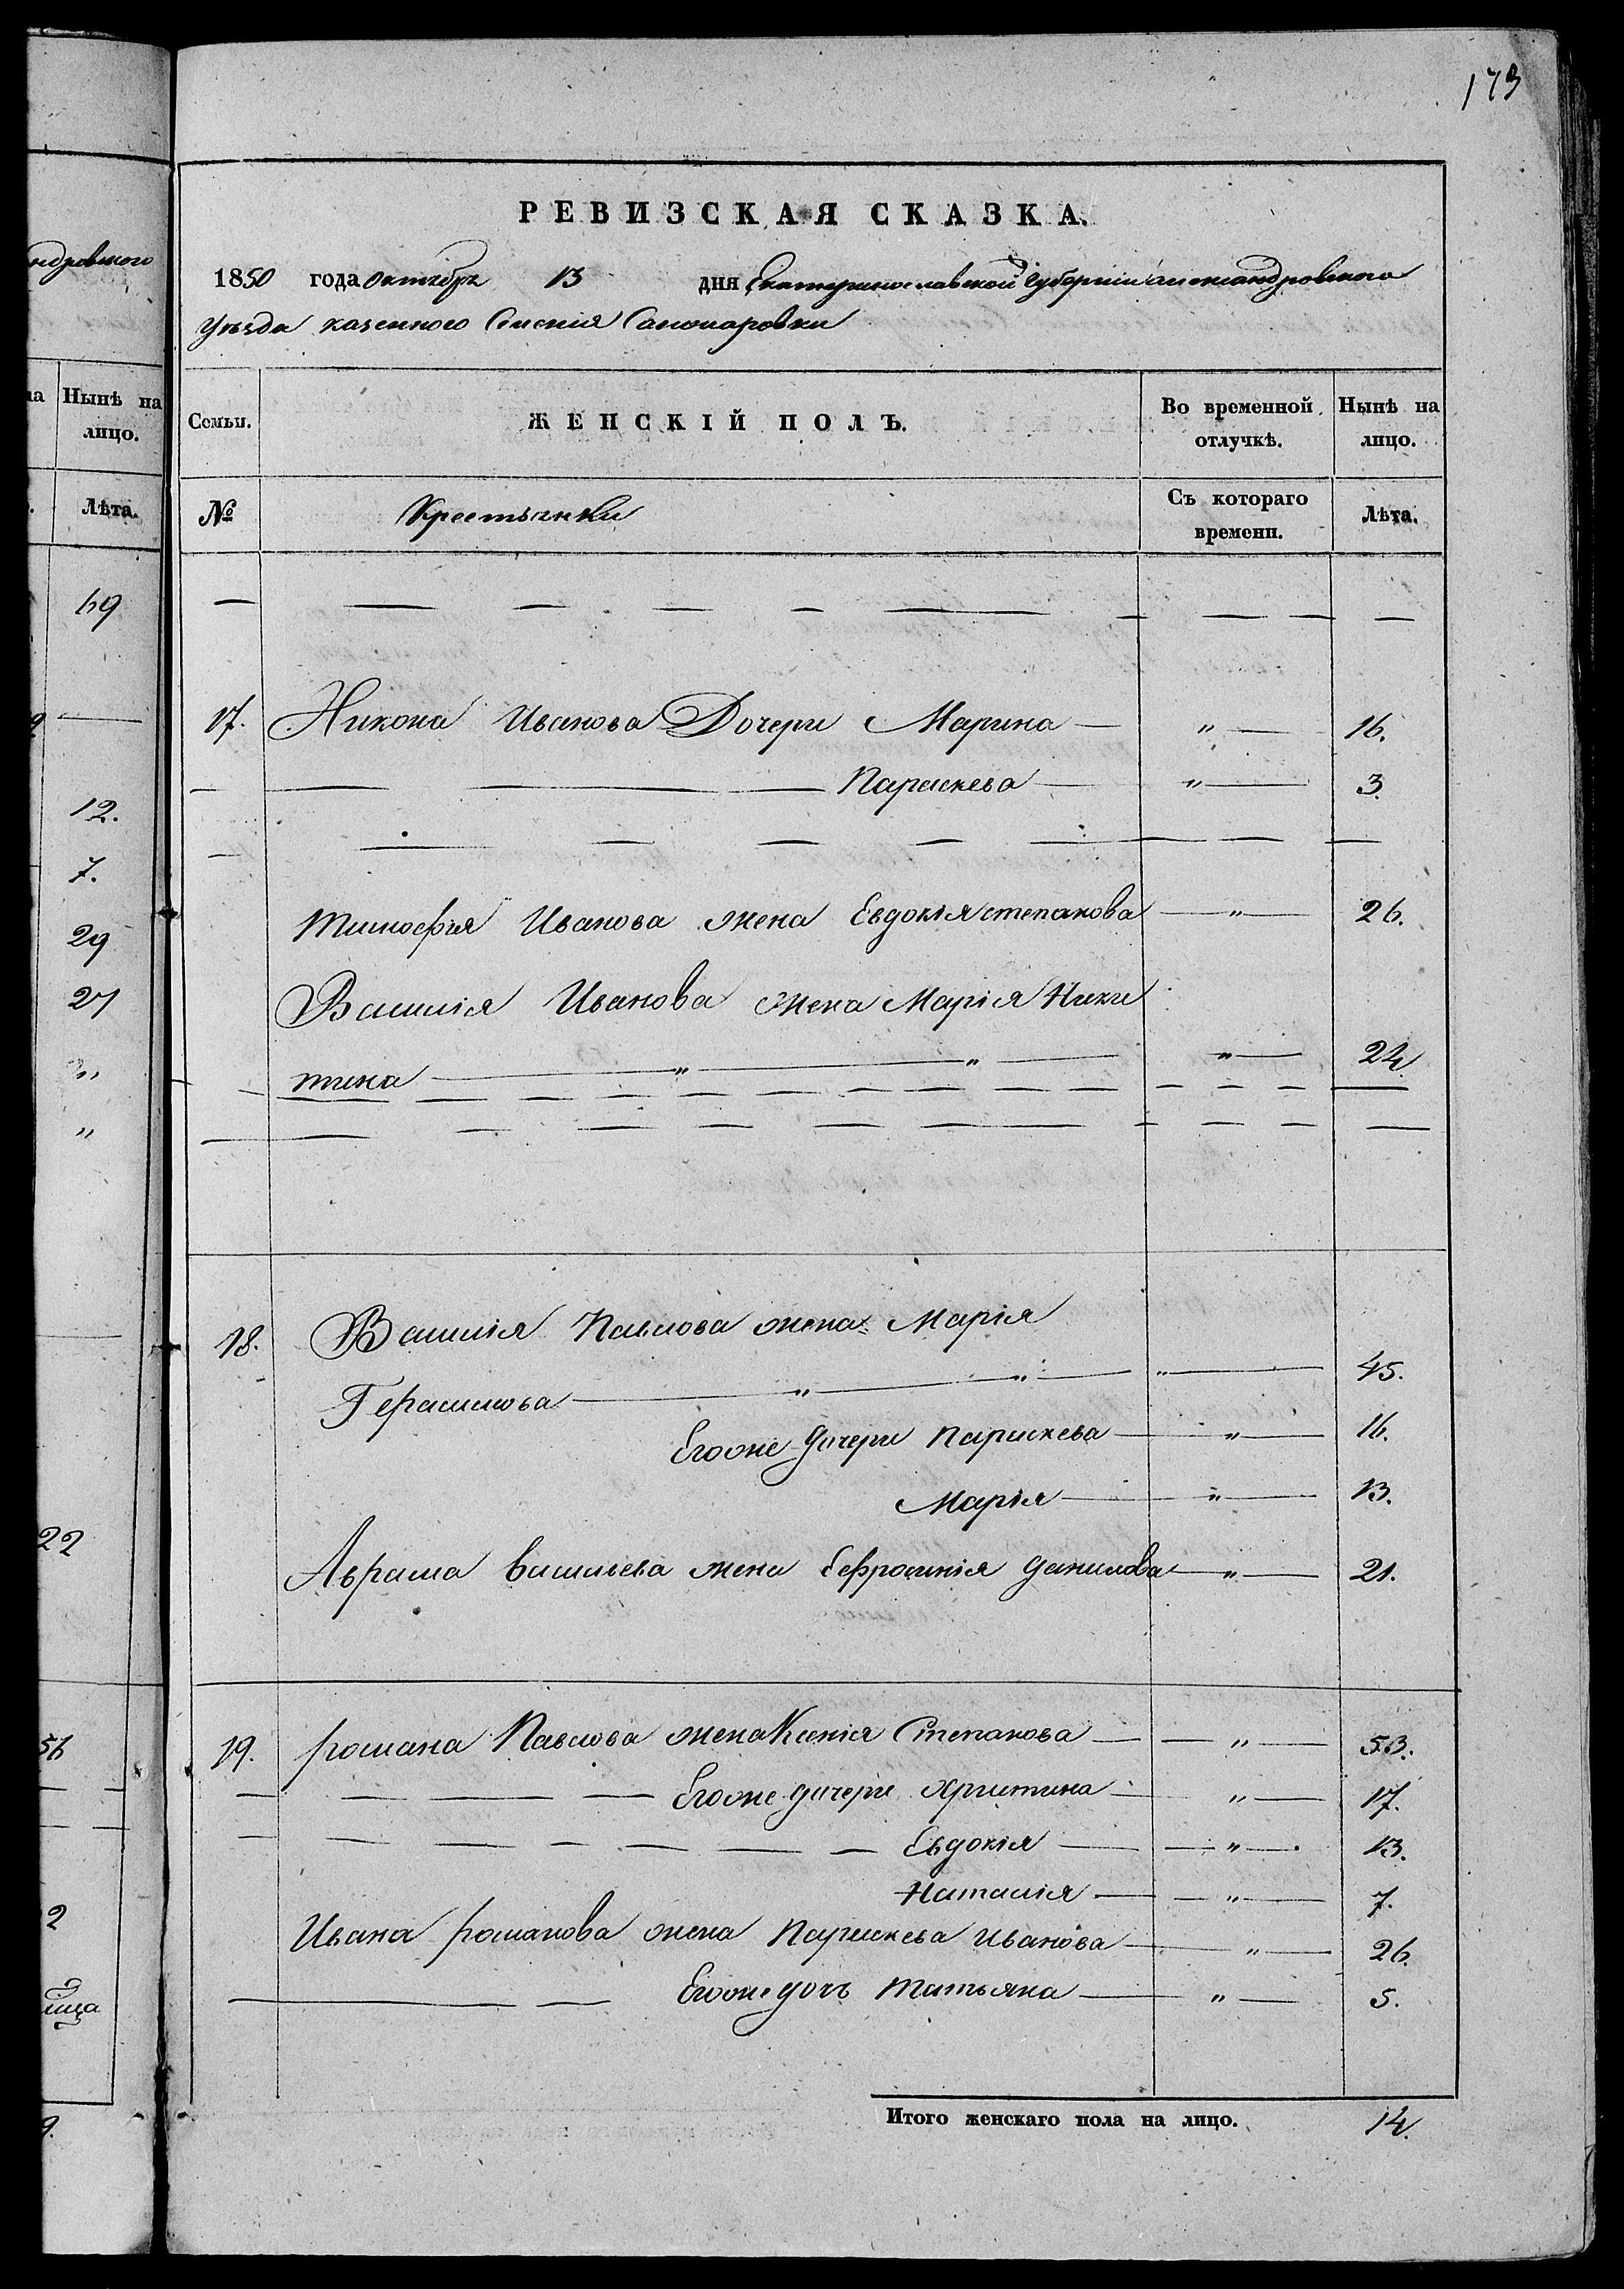 173
РЕВИЗСКАЯ СКАЗКА.
1850 года октября 13 дня Екатеринославской Губернии александровского
Уезда казенного Селения Санжаровки
Семьи. ЖЕНСКІЙ ПОЛЪ. Во временной отлучкѣ. Нынѣ на лицо.
№ Крестьянки Съ котораго времени. Лѣта.
— — — — — — — — — —
17. Никона Иванова Дочери Марина — „ — 16.
— — — — Параскева — „ — 3.
— — — — — — — — — —
Тимофея Иванова жена Евдокія степанова — „ — 26.
Василія Иванова жена Марія Ники
тина — „ — „ — „ — 24.
— — — — — — — — — —
— — — — — — — — — —
18. Василія Павлова жена Марія
Герасимова — „ — „ — „ — 45.
Егоже дочери Параскева — „ — 16.
Марія — „ — 13.
Аврама васильева жена Ефросинія данилова — „ — 21.
19. романа Павлова жена Ксенія Степанова — — „ — 53.
— — — — Егоже дочери Христина — „ — 17.
— — — — — — Евдокія — — „ — 13.
Наталія — — „ — 7.
Ивана романова жена Параскева иванова — „ — 26.
— — Егоже дочь татьяна — „ — 5.
Итого женскаго пола на лицо. 14.
ндровского
на Нынѣ на лицо.
Лѣта.
69
12.
7.
29
27
„
„
22
56
2
лица
9.